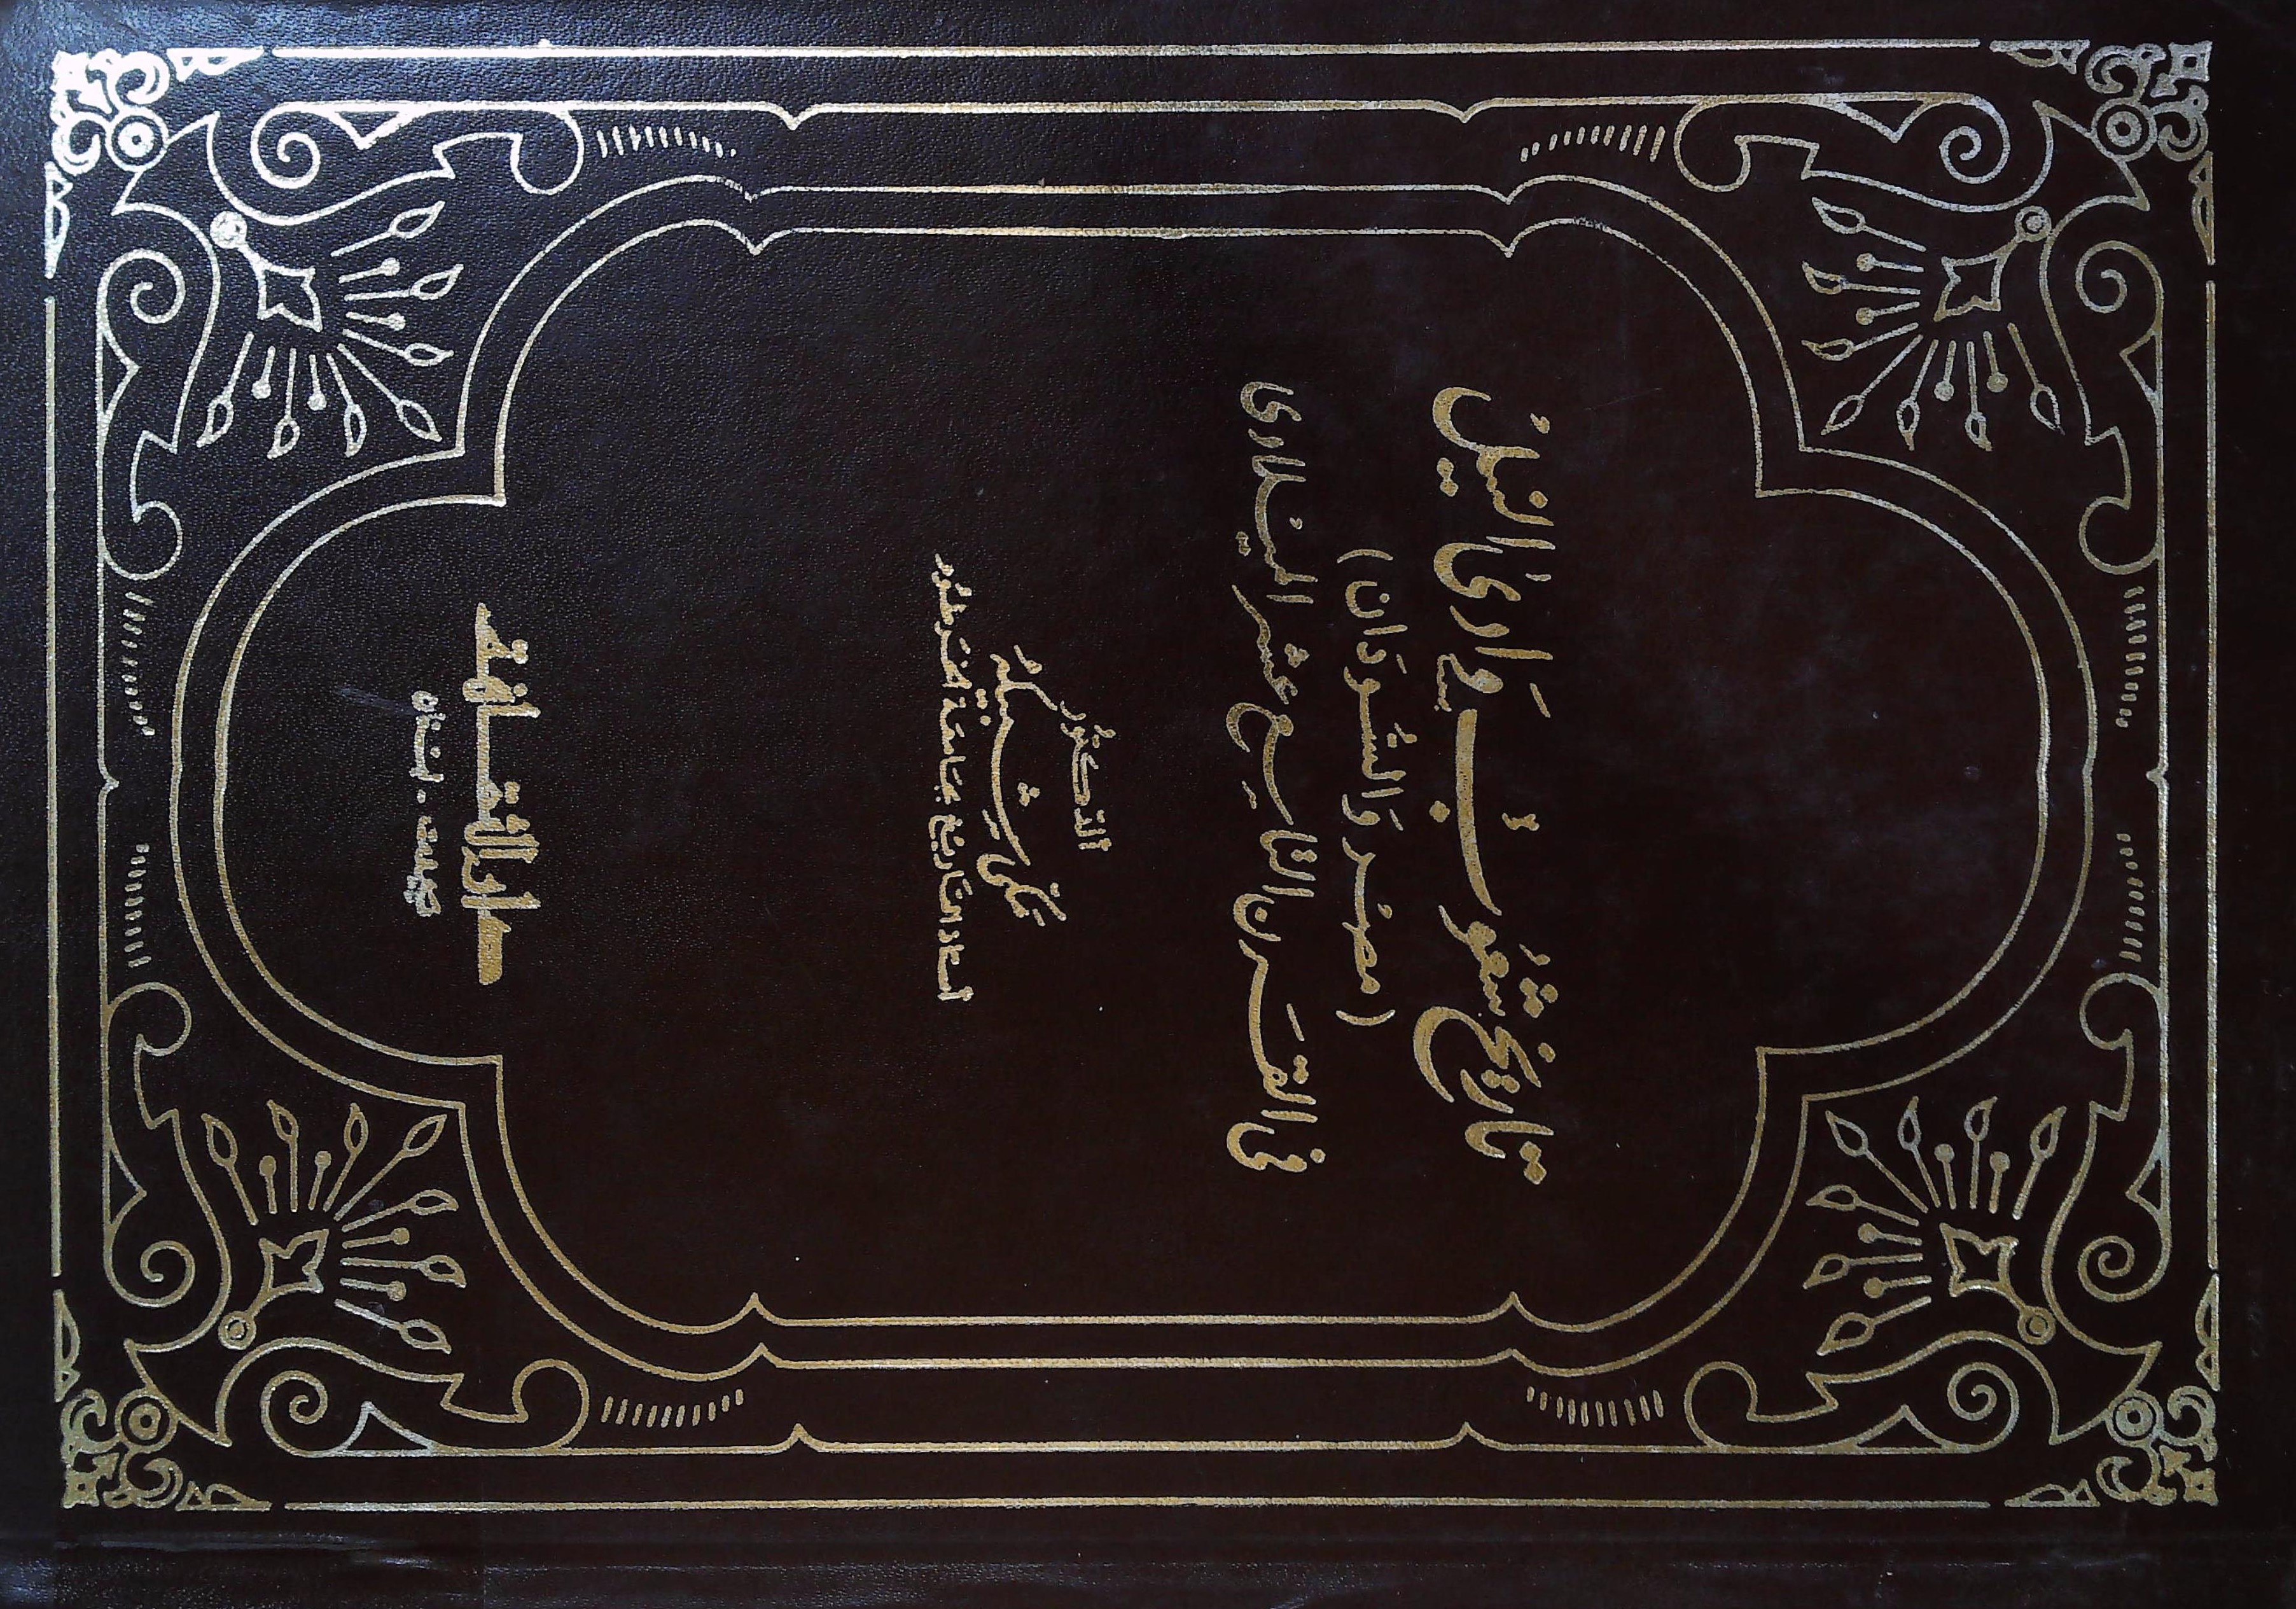 تاريخ شعوب وادى النيل
(مصر والسودان)
فى القرن التاسع عشر الميلادى
الدكتور
مكى شبيكه
استاذ التاريخ بجامعة الخرطوم
دار الثقافة
بيروت . لبنان